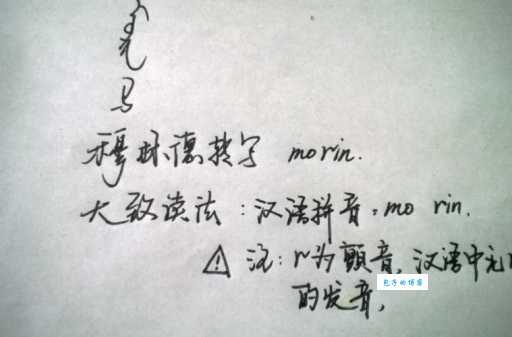 马
穆林德转字 morin.
大致读法:汉语拼音,mo rin.
⚠ 注:r为颤音,汉语中无
的发音,
包子的博客